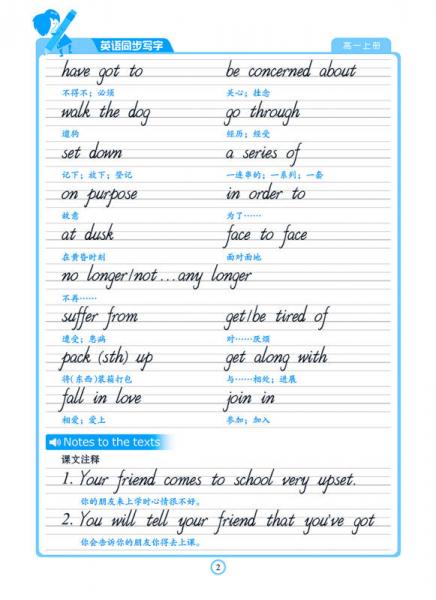 英语同步写字 高一上册
have got to be concerned about
不得不；必须 关心；挂念
walk the dog go through
遛狗 经历；经受
set down a series of
记下；放下；登记 一连串的；一系列；一套
on purpose in order to
故意 为了……
at dusk face to face
在黄昏时刻 面对面地
no longer/not...any longer
不再……
suffer from get/be tired of
遭受；患病 对……厌烦
pack (sth) up get along with
将(东西)装箱打包 与……相处；进展
fall in love join in
相爱；爱上 参加；加入
Notes to the texts
课文注释
1. Your friend comes to school very upset.
你的朋友来上学时心情很不好。
2. You will tell your friend that you've got
你会告诉你的朋友你得去上课。
2